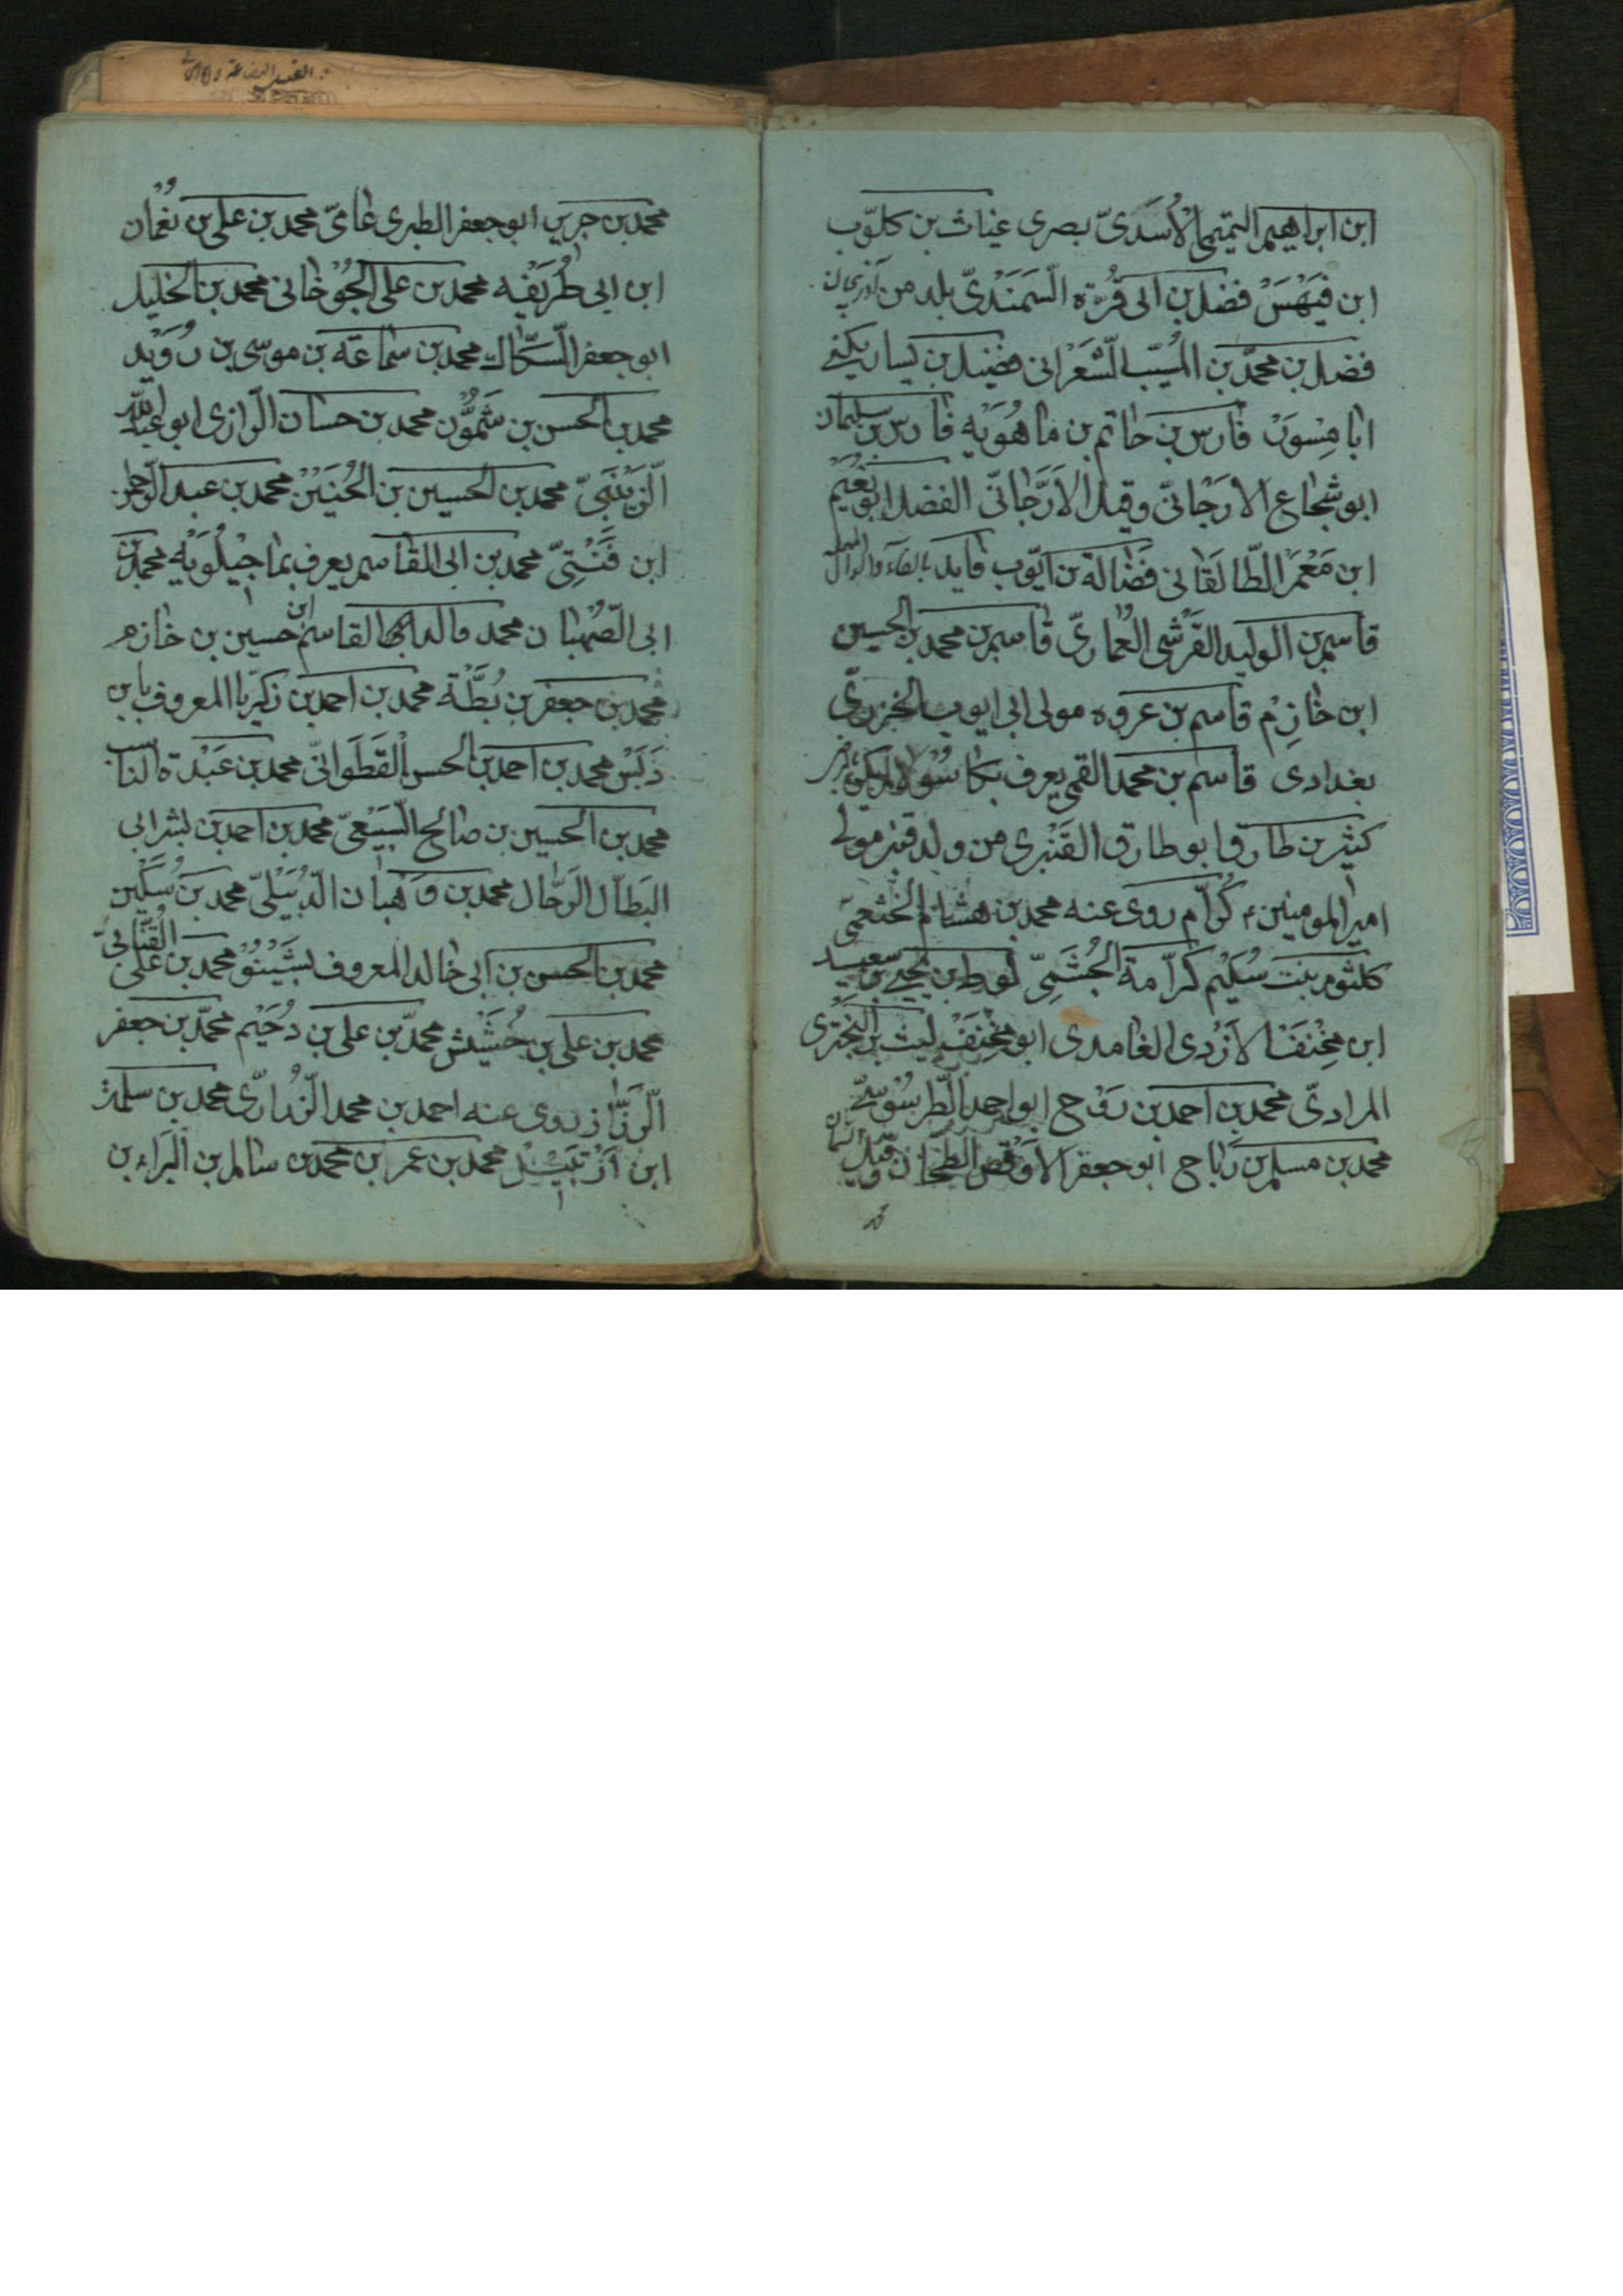 ابن ابراهيم التميمي الأُسَدىّ بصرى غياث بن كلّوب
ابن فَيهَسْ فضل بن ابى قُرّة السَمَنْدىّ بلد من آذربيجان
فضل بن محمّد بن المُسيّب الشّعْرانى فضيل بن يسار يكنى
ابا مِسْوَرْ فارس بن حاتم بن ماهُوَيْه فارس بن سليمان
ابو شجاع الارَجانىّ وقيل الارَّجانىّ الفضل ابو نُعَيم
ابن مَعْمَر الطّالقانى فَضالة بن ايّوب قايد بالفاء والدال
قاسم بن الوليد القَرَشى العُمارىّ قاسم بن محمد بن الحسين
ابن خازِم قاسم بن عروه مولى ابى ايوب الخوزىّ
بغدادى قاسم بن محمد القمى يعرف بكاسُولا
كثير بن طارق ابو طارق القَنْبرى من ولد قنبر مولى
امير المومنين ع كُرّام روى عنه محمد بن هشام الخثعمىّ
كلثوم بنت سُلَيْم كرّامة الجُشَمِىّ لوط بن يحيى بن سعيد
ابن مِخْنَفْ الازدى الغامدى ابو مِخْنَفْ ليث بن البَخْتَرى
المرادىّ محمد بن احمد بن رَوْح ابو احمد الطَّرسُوسىّ
محمد بن مسلم بن رَباح ابو جعفر الاَوْقَص الطحّان وقيل السمان
محمد بن جرير ابو جعفر الطبرى عامىّ محمد بن على بن نُعْمان
ابن ابى طُرَيْفه محمد بن على الجُوْخانى محمد بن الخليل
ابو جعفر السّكّاك محمد بن سماعَة بن موسى بن رُوَيْد
محمد بن الحسن بن شَمُّون محمد بن حسان الرّازى ابو عبد الله
الزّيْنَبىّ محمد بن الحسين بن الحُنَيْن محمد بن عبد الرّحمن
ابن فَنْتِىّ محمد بن ابى القاسم يعرف بماجيْلُوَيْه محمد بن
ابى الصّهْبان محمد والد ابى القاسم ابن حسين بن خازم
محمد بن جعفر بن بُطَّة محمد بن احمد بن زكريّا المعروف بابن
دَبَسْ محمد بن احمد بن الحسن القَطَوانىّ محمد بن عَبْدَة الناسب
محمد بن الحسين بن صالح السَّبِيْعىّ محمد بن احمد بن بشر ابى
البَطّال الرَحّال محمد بن وَهْبان الدُّبَيْلىّ محمد بن سُكَيْن
محمد بن الحسن بن ابى خالد المعروف بشَيْنُوْ محمد بن على القُنّائىّ
محمد بن على بن حُشَيْش محمّد بن على بن دُحَيْم محمّد بن جعفر
الرّزّاز روى عنه احمد بن محمد الزُّرارىّ محمد بن سلمة
ابن اَرْتَبِيْل محمد بن عمر ابن محمد بن سالم بن البَراء بن